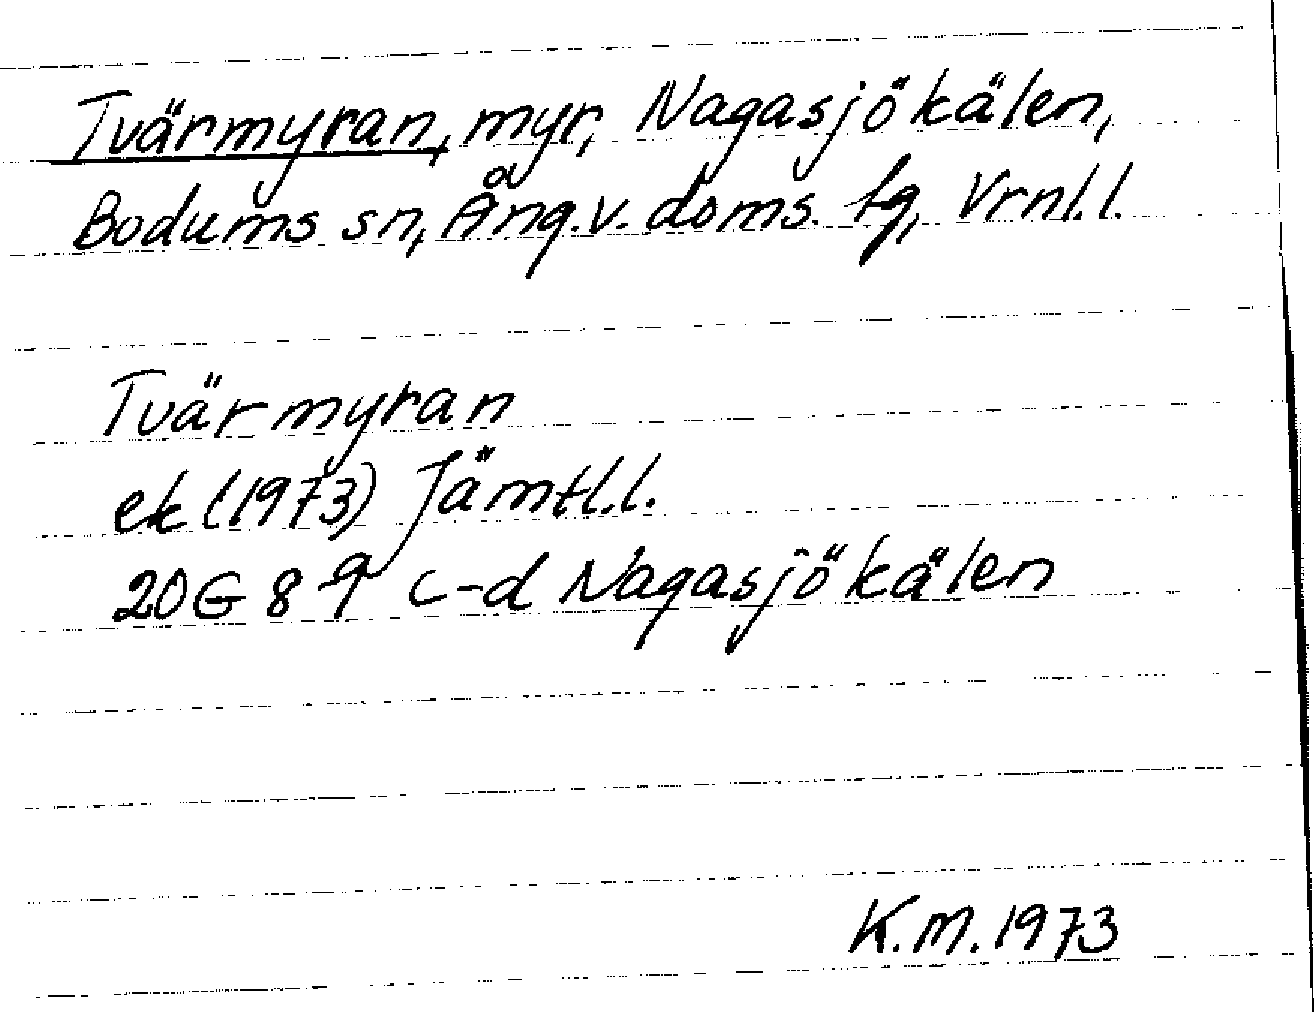 Tvärmyran, myr, Nagasjökälen,
Bodums sn, Ång.v. doms. tg, Vrnl.l.
Tvärmyran
ek (1973) Jämtl.l.
20G 8 9 c-d Nagasjökälen
K.M. 1973